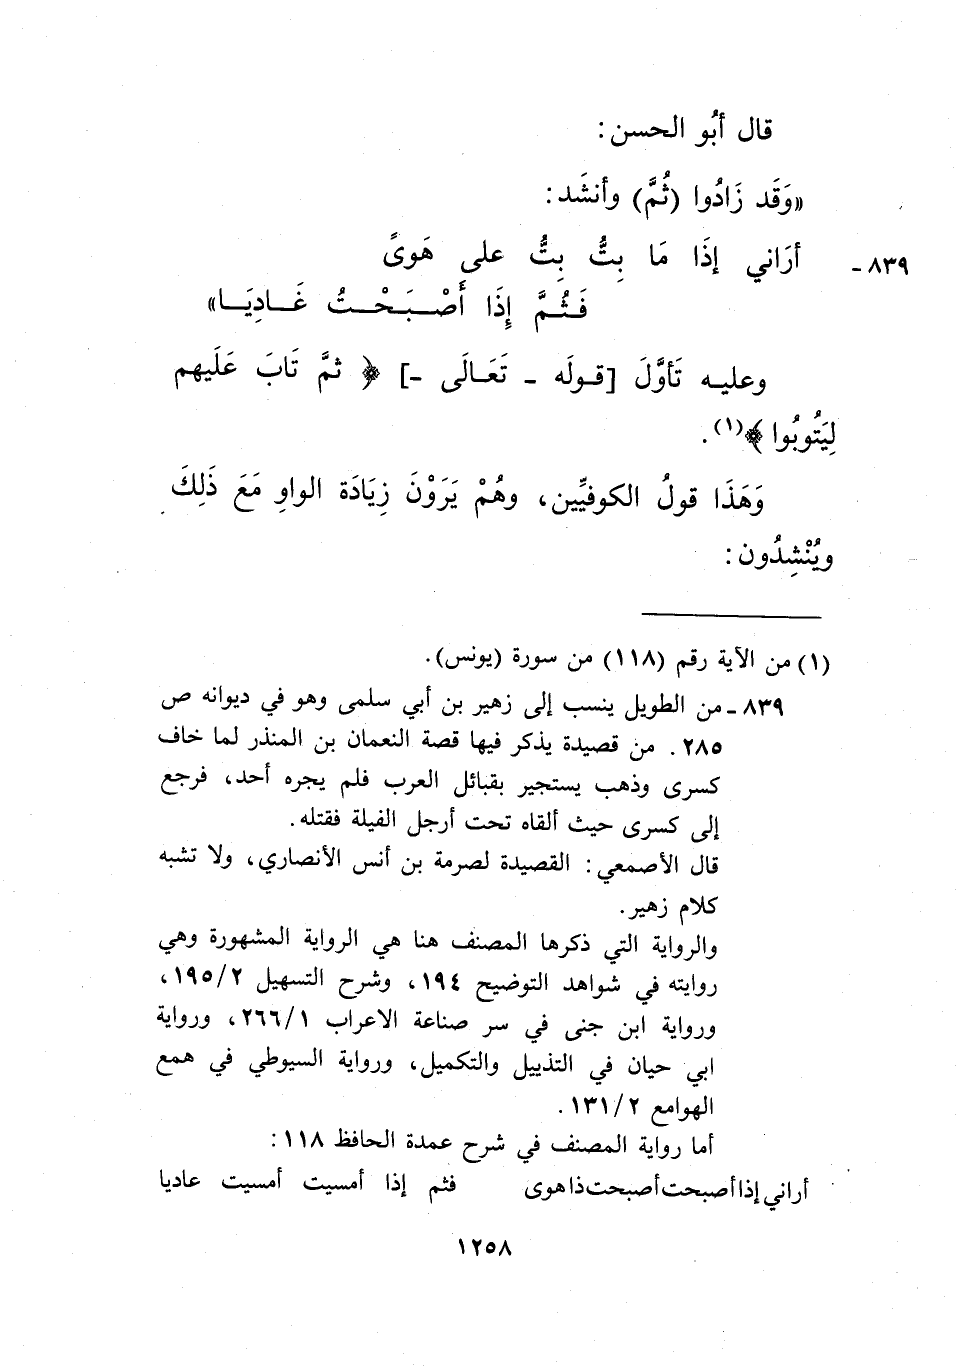 قال أبُو الحسن:
«وَقَد زَادُوا (ثُمَّ) وأنشَد:
٨٣٩- أرَاني إذَا مَا بِتُّ بِتُّ على هَوىً
فَـثُـمَّ إِذَا أَصْـبَـحْـتُ غَـادِيَـا»
وعليه تَأوَّلَ [قولَه - تَعَالَى -] ﴿ ثمَّ تَابَ عَلَيهم
لِيَتُوبُوا ﴾(١).
وَهَذَا قولُ الكوفيِّين، وهُمْ يَرَوْنَ زِيَادَة الواوِ مَعَ ذَلِكَ
ويُنْشِدُون:
(١) من الآية رقم (١١٨) من سورة (يونس).
٨٣٩- من الطويل ينسب إلى زهير بن أبي سلمى وهو في ديوانه ص
٢٨٥. من قصيدة يذكر فيها قصة النعمان بن المنذر لما خاف
كسرى وذهب يستجير بقبائل العرب فلم يجره أحد، فرجع
إلى كسرى حيث ألقاه تحت أرجل الفيلة فقتله.
قال الأصمعي: القصيدة لصرمة بن أنس الأنصاري، ولا تشبه
كلام زهير.
والرواية التي ذكرها المصنف هنا هي الرواية المشهورة وهي
روايته في شواهد التوضيح ١٩٤، وشرح التسهيل ١٩٥/٢،
ورواية ابن جنى في سر صناعة الاعراب ٢٦٦/١، ورواية
ابي حيان في التذييل والتكميل، ورواية السيوطي في همع
الهوامع ١٣١/٢.
أما رواية المصنف في شرح عمدة الحافظ ١١٨:
أراني إذا أصبحت أصبحت ذا هوى فثم إذا أمسيت أمسيت عاديا
١٢٥٨